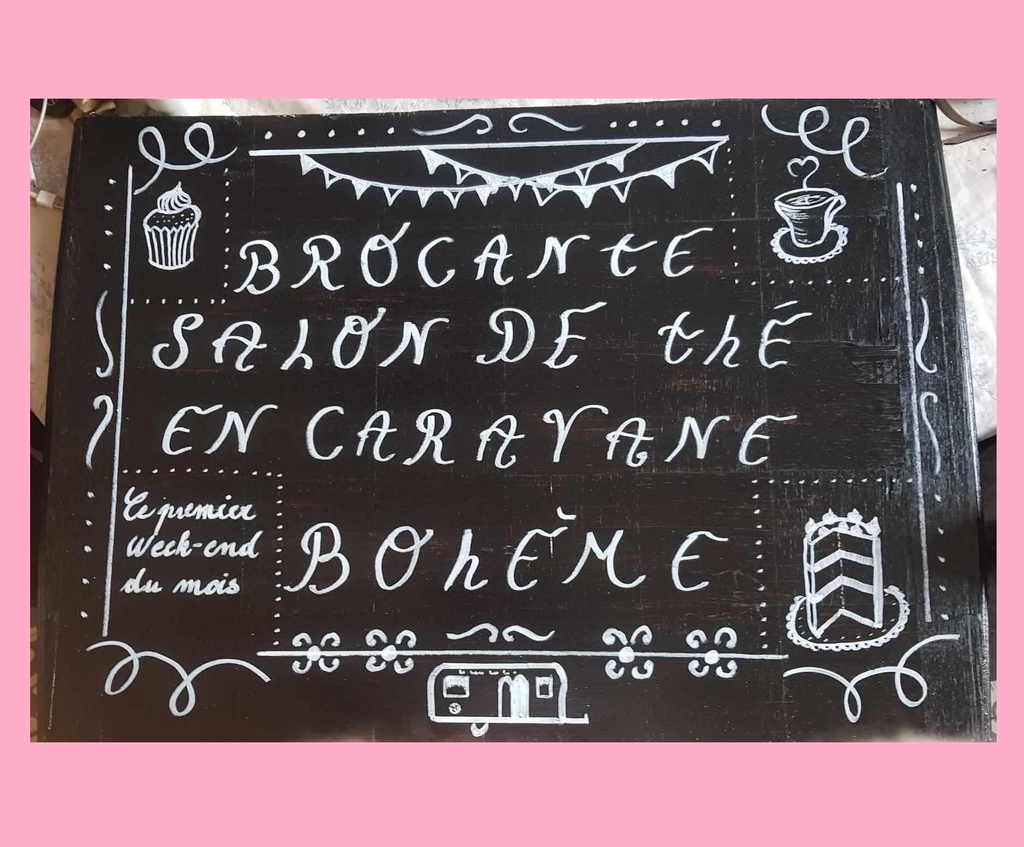 BROCANTE
SALON DE thÉ
EN CARAVANE
BOhÈME
Le premier
Week-end
du mois